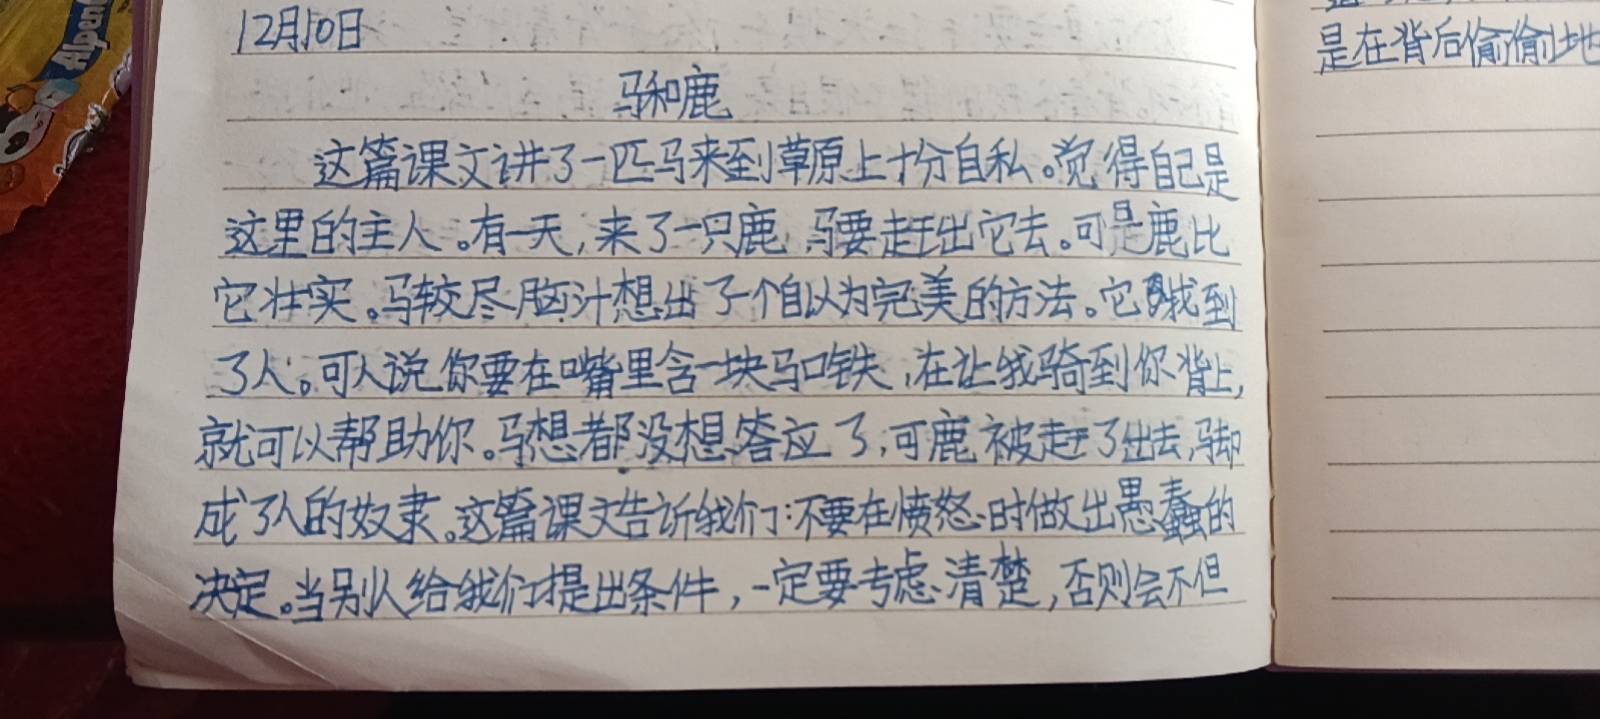 12月10日
马和鹿
这篇课文讲了一匹马来到草原上十分自私。觉得自己是
这里的主人。有一天,来了一只鹿,马要赶出它去。可是鹿比
它壮实。马较尽脑汁想出了一个自以为完美的方法。它找到
了人。可人说你要在嘴里含一块马口铁,在让我骑到你背上,
就可以帮助你。马想都没想答应了,可鹿被赶了出去,马却
成了人的奴隶。这篇课文告诉我们:不要在愤怒时做出愚蠢的
决定。当别人给我们提出条件,一定要考虑清楚,否则会不但
是在背后偷偷地
Alpen